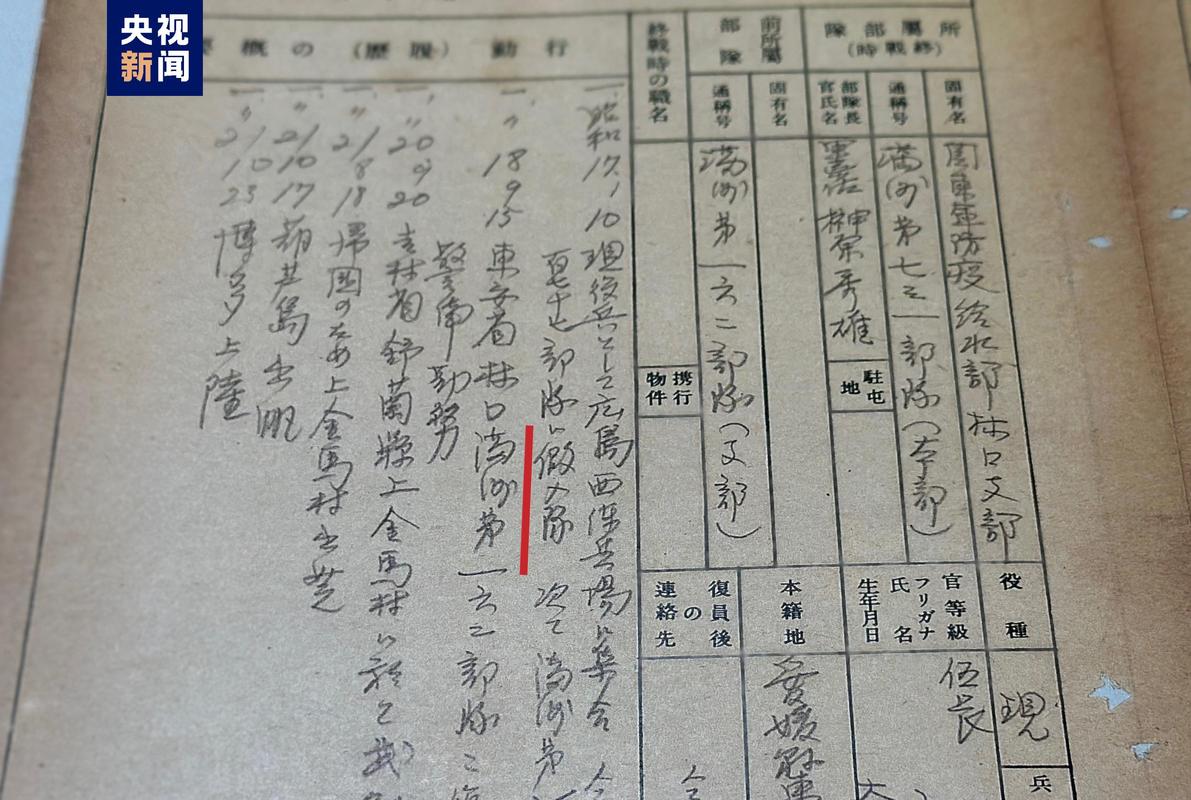 央视
新闻
所屬部隊
(終戰時)
固有名
関東軍防疫給水部林口支部
通稱号
満洲第七三一部隊(本部)
部隊長
官氏名
榊原秀雄
駐屯地
前所屬
部隊
固有名
通稱号
満洲第一六二部隊(支部)
終戰時の職名
携行
物件
行動(履歴)の概要
一、昭和17、1、10 現役兵として広島西練兵場に集合
部隊に假入隊 次て満洲第
一、〃18 9 15 東安省林口満洲第一六二部隊
警備勤努
一、〃20 9 20 吉林省舒蘭縣上金馬村ニ於て武
一、〃21 8 18 帰国のため上金馬村出発
一、〃21 10 17 葫芦島出帆
一、〃21 10 23 博多上陸
役種
現
兵
官等級
フリガナ
氏名
生年月日
伍長
本籍地
愛媛県
復員後
の
連絡先